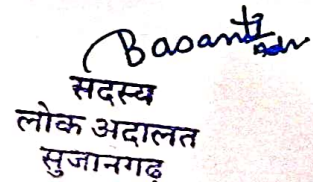 Basanti
Adv
सदस्य
लोक अदालत
सुजानगढ़